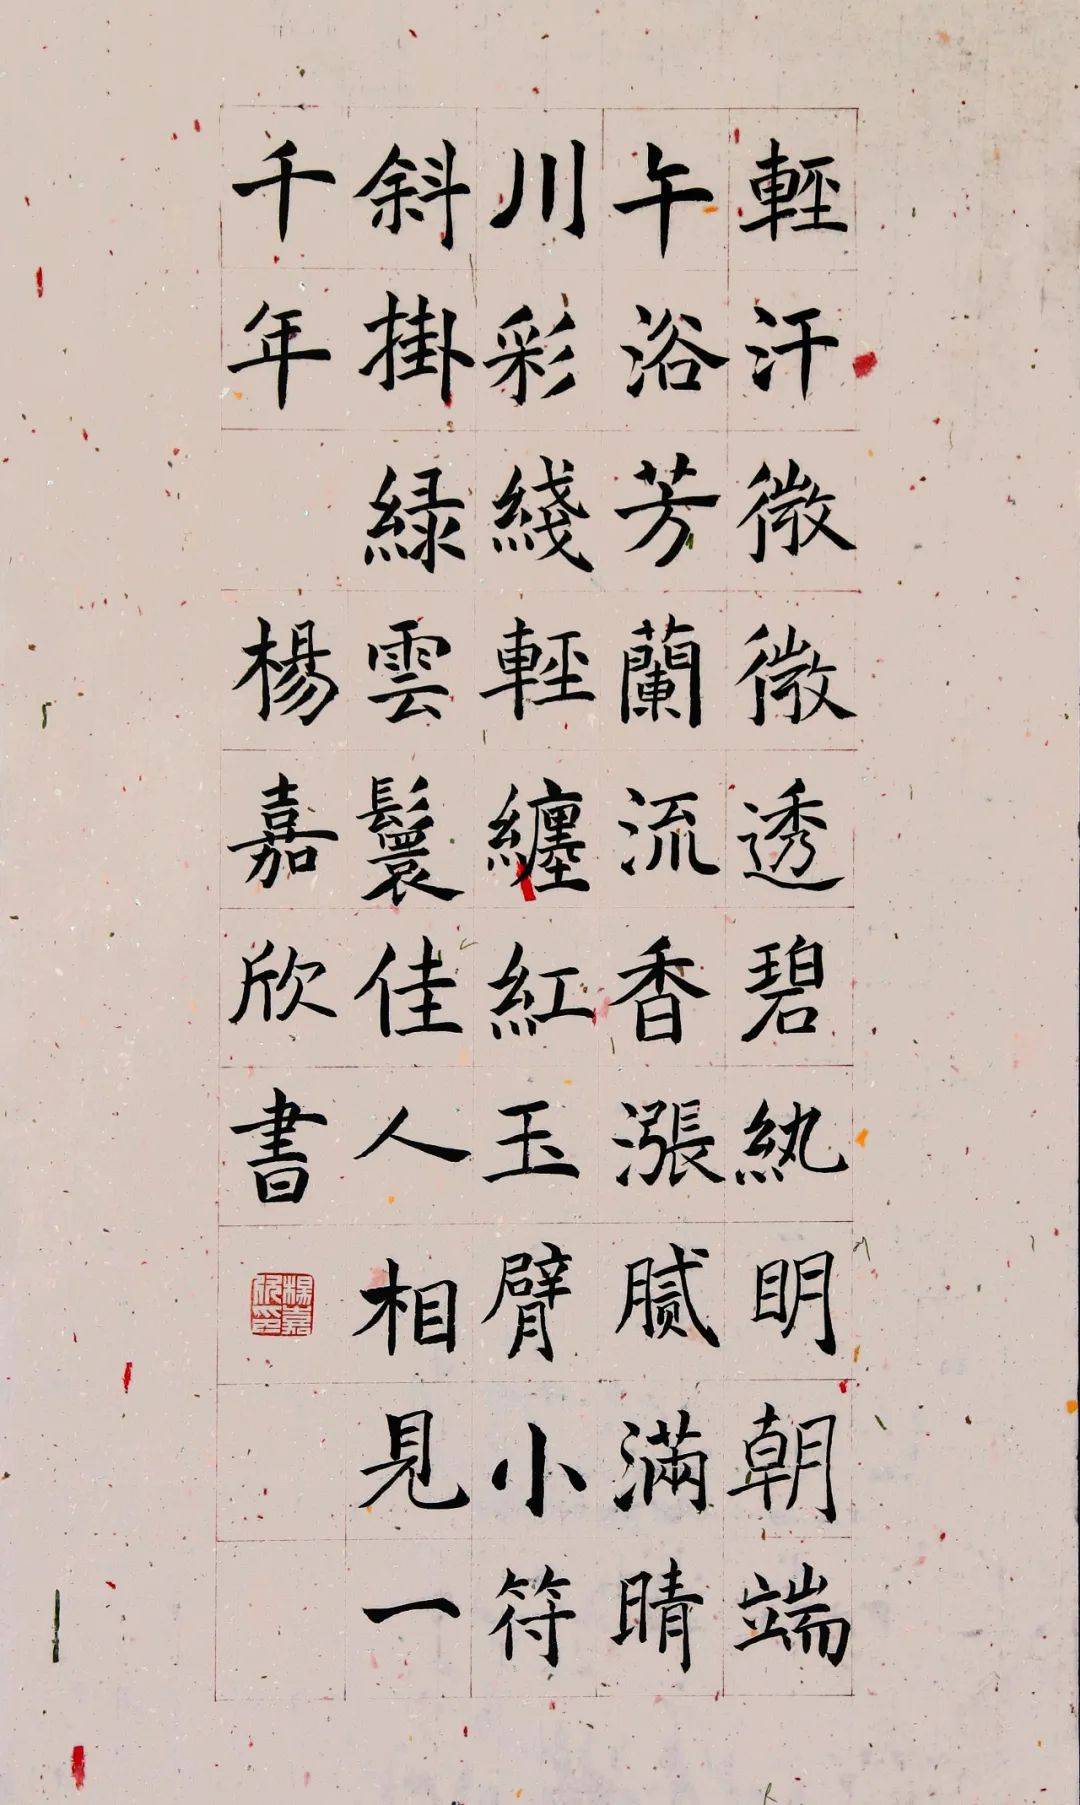 輕汗微微透碧紈明朝端
午浴芳蘭流香漲膩滿晴
川彩綫輕纏紅玉臂小符
斜掛緑雲鬟佳人相見一
千年
楊嘉欣書
楊嘉欣印